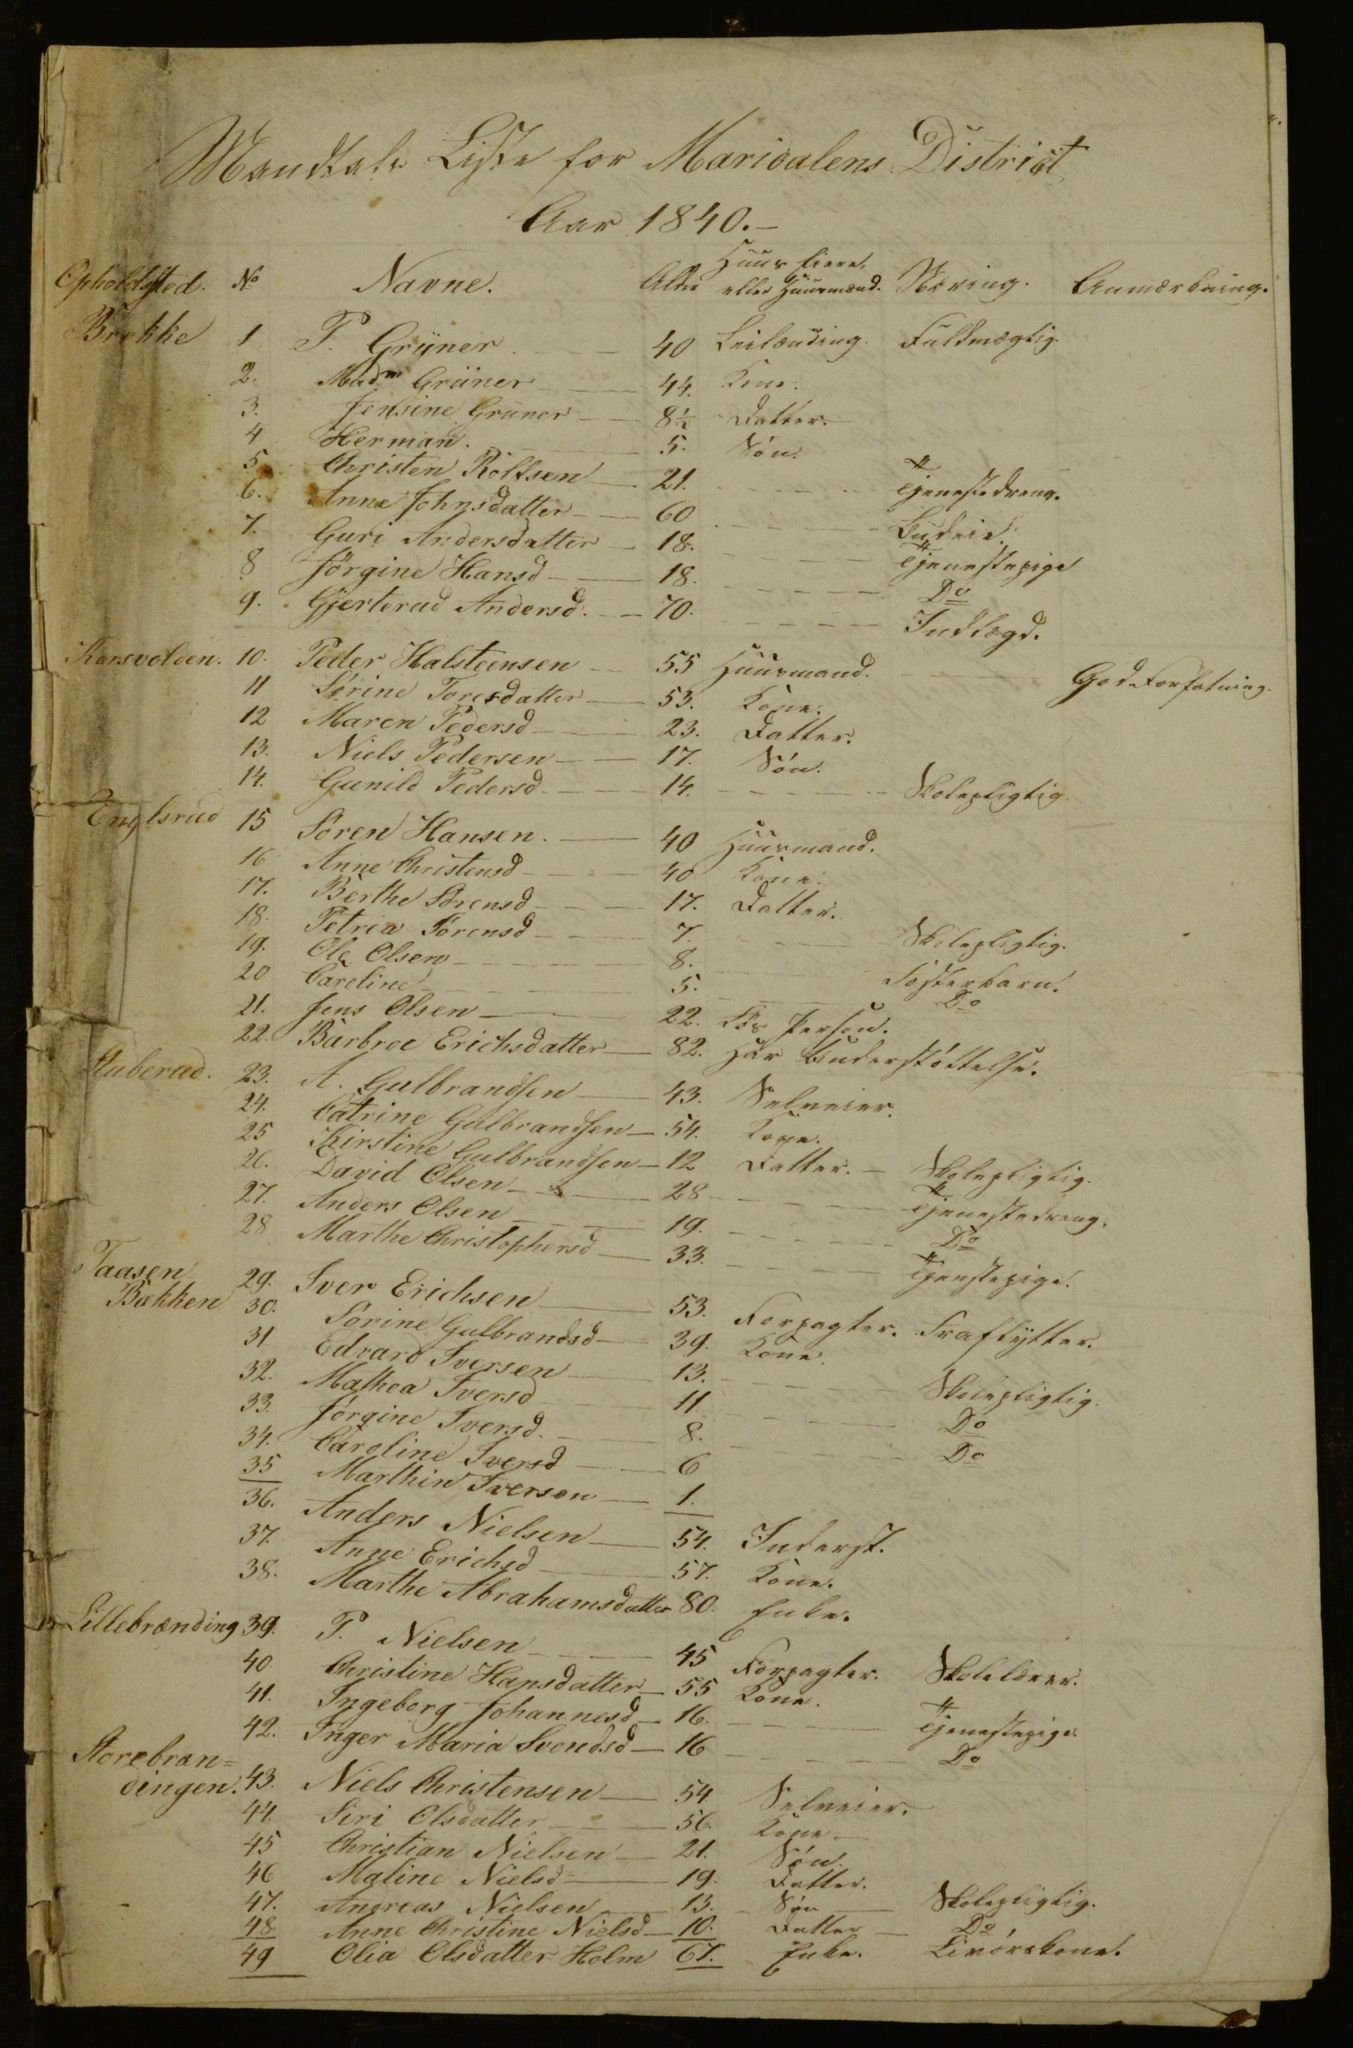 Mandtals Liste for Maridalens District
Aar 1840.-
Opholdsted. No Navne. Alder Huus Eiere, eller Huusmænd. Næring. Anmærkning.
Brekke 1 P. Grüner 40 Leilænding. Fuldmægtig.
2. Madm Grüner 44. Kone.
3. Jensine Grüner 8½ Datter.
4 Herman. 5. Søn.
5 Christen Rolfsen 21. Tjenestedreng.
6. Anne Johnsdatter 60 Budeie.
7. Guri Andersdatter 18. Tjenestepige
8 Jörgine Hansd 18. Do
9. Gjertrud Andersd. 70. Indlægd.
Korsvolden. 10. Peder Halsteensen 55 Huusmand. God Forfatning.
11 Sörine Toresdatter 53. Kone.
12 Maren Pedersd 23. Datter.
13. Niels Pedersen 17. Søn.
14. Gunild Pedersd. 14. Skolepligtig.
Englsrud 15 Sören Hansen. 40 Huusmand.
16 Anne Christensd 40 Kone.
17. Berthe Sörensd 17. Datter.
18. Petria Sörensd 7. Skolepligtig.
19. Ole Olsen 8. Fosterbarn.
20 Caroline 5. Do
21. Jens Olsen 22. Løs Person.
22. Barbroe Erichsdatter 82. Har Understøttelse.
Stuberud. 23. A. Gulbrandsen 43. Selveier.
24. Catrine Gulbrandsen 54. Kone.
25 Kirstine Gulbrandsen 12 Datter. Skolepligtig.
26. David Olsen 28 Tjenestedreng.
27. Anders Olsen 19. Do
28 Marthe Christophersd 33. Tjenstepige.
Taasen
Bækken 29. Iver Erichsen 53. Forpagter. Fraflytter.
30. Sörine Gulbrandsd 39. Kone.
31 Edvard Iversen 13. Skolepligtig.
32. Mathea Iversd 11. Do
33. Jörgine Iversd. 8. Do
34. Caroline Iversd 6
35 Marthin Iversen 1.
36. Anders Nielsen 54. Inderst.
37. Anne Erichsd 57. Kone.
38. Marthe Abrahamsdatter 80. Enke.
Lillebrænding 39. P. Nielsen 45 Forpagter. Skolelærer.
40 Christine Hansdatter 55 Kone.
41. Ingeborg Johannesd 16. Tjenestepige.
42. Inger Maria Svendsd 16 Do
Storebræn=
dingen. 43. Niels Christensen 54 Selveier.
44. Siri Olsdatter 56. Kone
45 Christian Nielsen 21. Søn.
46 Maline Nielsd 19. Datter.
47. Andreas Nielsen 13. Søn Skolepligtig.
48 Anne Christine Nielsd 10. Datter Do
49 Olia Olsdatter Holm 67. Enke. Livörekone.